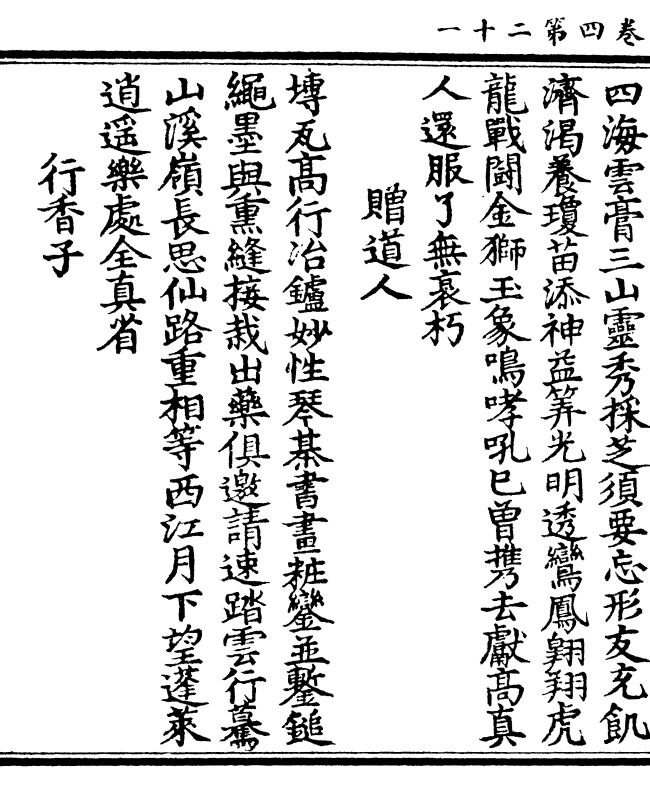 卷四第二十一
四海雲膏三山靈秀採芝須要忘形友充飢
濟渴養瓊苗添神益筭光明透鸞鳳翱翔虎
龍戰鬪金獅玉象鳴哮吼已曾携去獻高真
人還服了無衰朽
贈道人
塼瓦高行冶鑪妙性琴棊書畫粧鑾並鏨鎚
繩墨與熏縫接栽出藥俱邀請速踏雲行驀
山溪嶺長思仙路重相等西江月下望蓬萊
逍遥樂處全真省
行香子